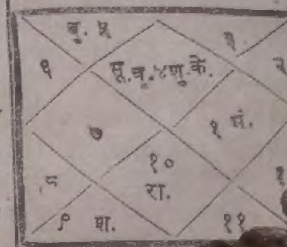 बु. ५
३
६
सू. बृ. ४ शु. के.
२
७
१ मं.
१०
रा.
८
९ श.
११